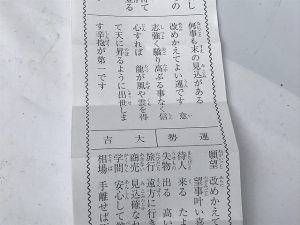 何事も末の見込がある
改めかえてよい運です 意
志強く驕り高ぶる事なく信
心すれば 龍が風や雲を得
て天に昇るように出世しま
す辛抱が第一です
運勢
大吉
願望 改めかえて
望事叶い喜
待人 来る たよ
失物 出る 高い
旅行 遠方に行き
商売 見込確なれ
学問 安心して勉
相場 手離せば